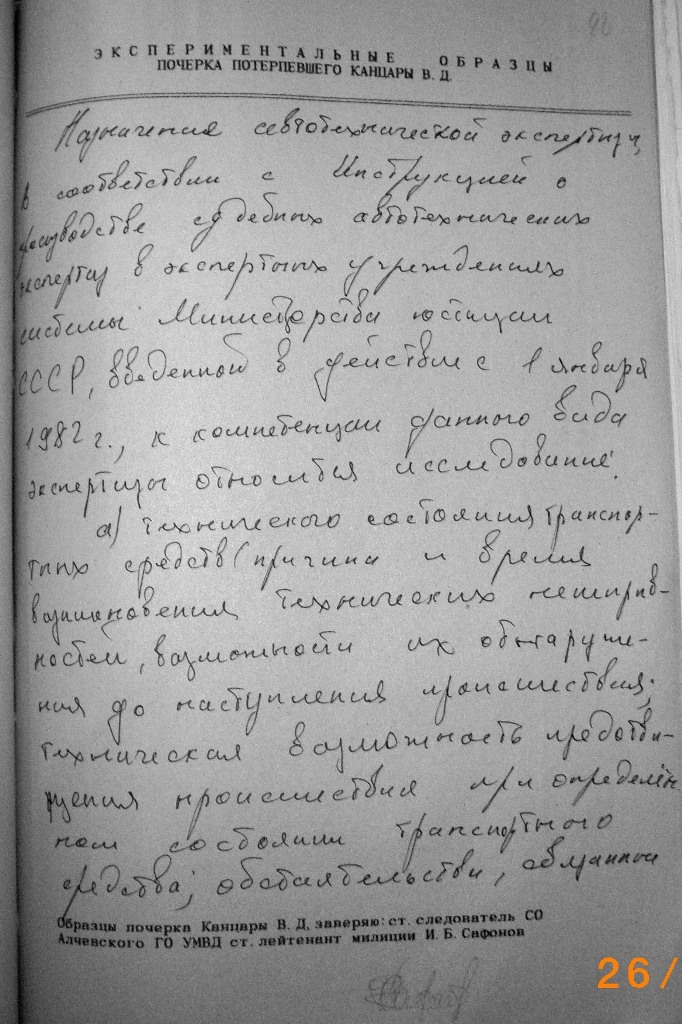 96
ЭКСПЕРИМЕНТАЛЬНЫЕ ОБРАЗЦЫ
ПОЧЕРКА ПОТЕРПЕВШЕГО КАНЦАРЫ В. Д.
Назначения автотехнической экспертизы,
в соответствии с Инструкцией о
производстве судебных автотехнических
экспертиз в экспертных учреждениях
системы Министерства юстиции
СССР, введенной в действие с 1 января
1982 г., к компетенции данного вида
экспертизы относится исследование:
а) технического состояния транспор-
тных средств (причина и время
возникновения технических неисправ-
ностей, возможности их обнаруже-
ния до наступления происшествия;
техническая возможность предотвра-
щения происшествия при определён
ном состоянии транспортного
средства; обстоятельства,
Образцы почерка Канцары В. Д. заверяю: ст. следователь СО
Алчевского ГО УМВД ст. лейтенант милиции И. Б. Сафонов
26/